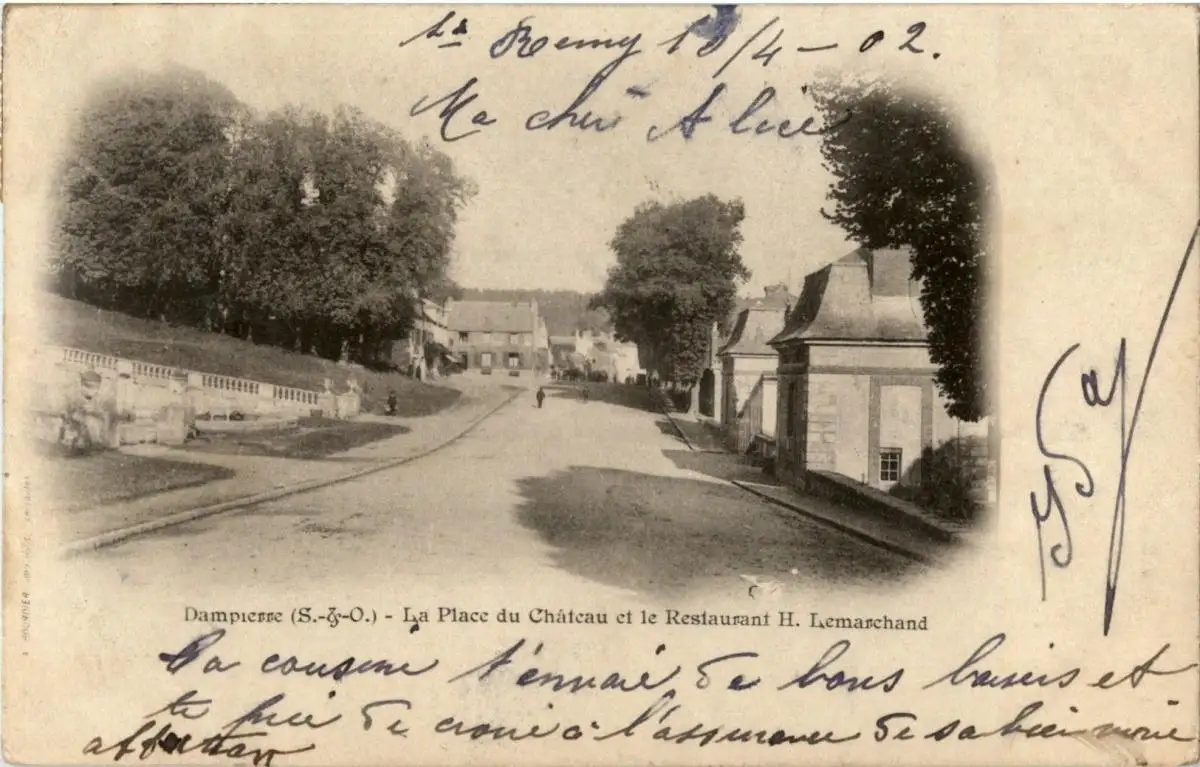 St Remy 13/4-02.
Ma chère Alice
Dampierre (S.-&-O.) - La Place du Château et le Restaurant H. Lemarchand
Ta cousine t'envoie de bons baisers et
te prie de croire à l'assurance de sa bien vraie
affection